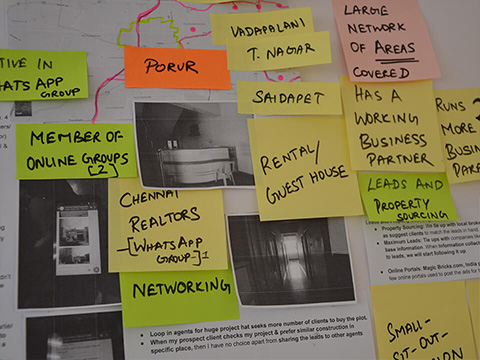 VADAPALANI
T. NAGAR
LARGE
NETWORK
OF AREAS
COVERED
TIVE IN
HATSAPP
GROUP
PORUR
SAIDAPET
HAS A
WORKING
BUSINESS
PARTNER
RUNS
MORE
BUSIN
MEMBER OF
ONLINE GROUPS
[2]
RENTAL/
GUEST HOUSE
LEADS AND
PROPERTY
SOURCING
CHENNAI
REALTORS
-[WHATSAPP
GROUP-]1
NETWORKING
Property Sourcing: We tie up with local
as suggest clients to match the leads in hand.
Maximum Leads: Tie ups with
base information. When information
to leads, we will start following it up
Online Portals: Magic Bricks.com,
few online portals used to post the ads for
Loop in agents for huge project hat seeks more number of clients to buy the plot.
When my prospect client checks my project & prefer similar construction in
specific place, then I have no choice apart from sharing the leads to other agents
SMALL-
SIT-OUT-